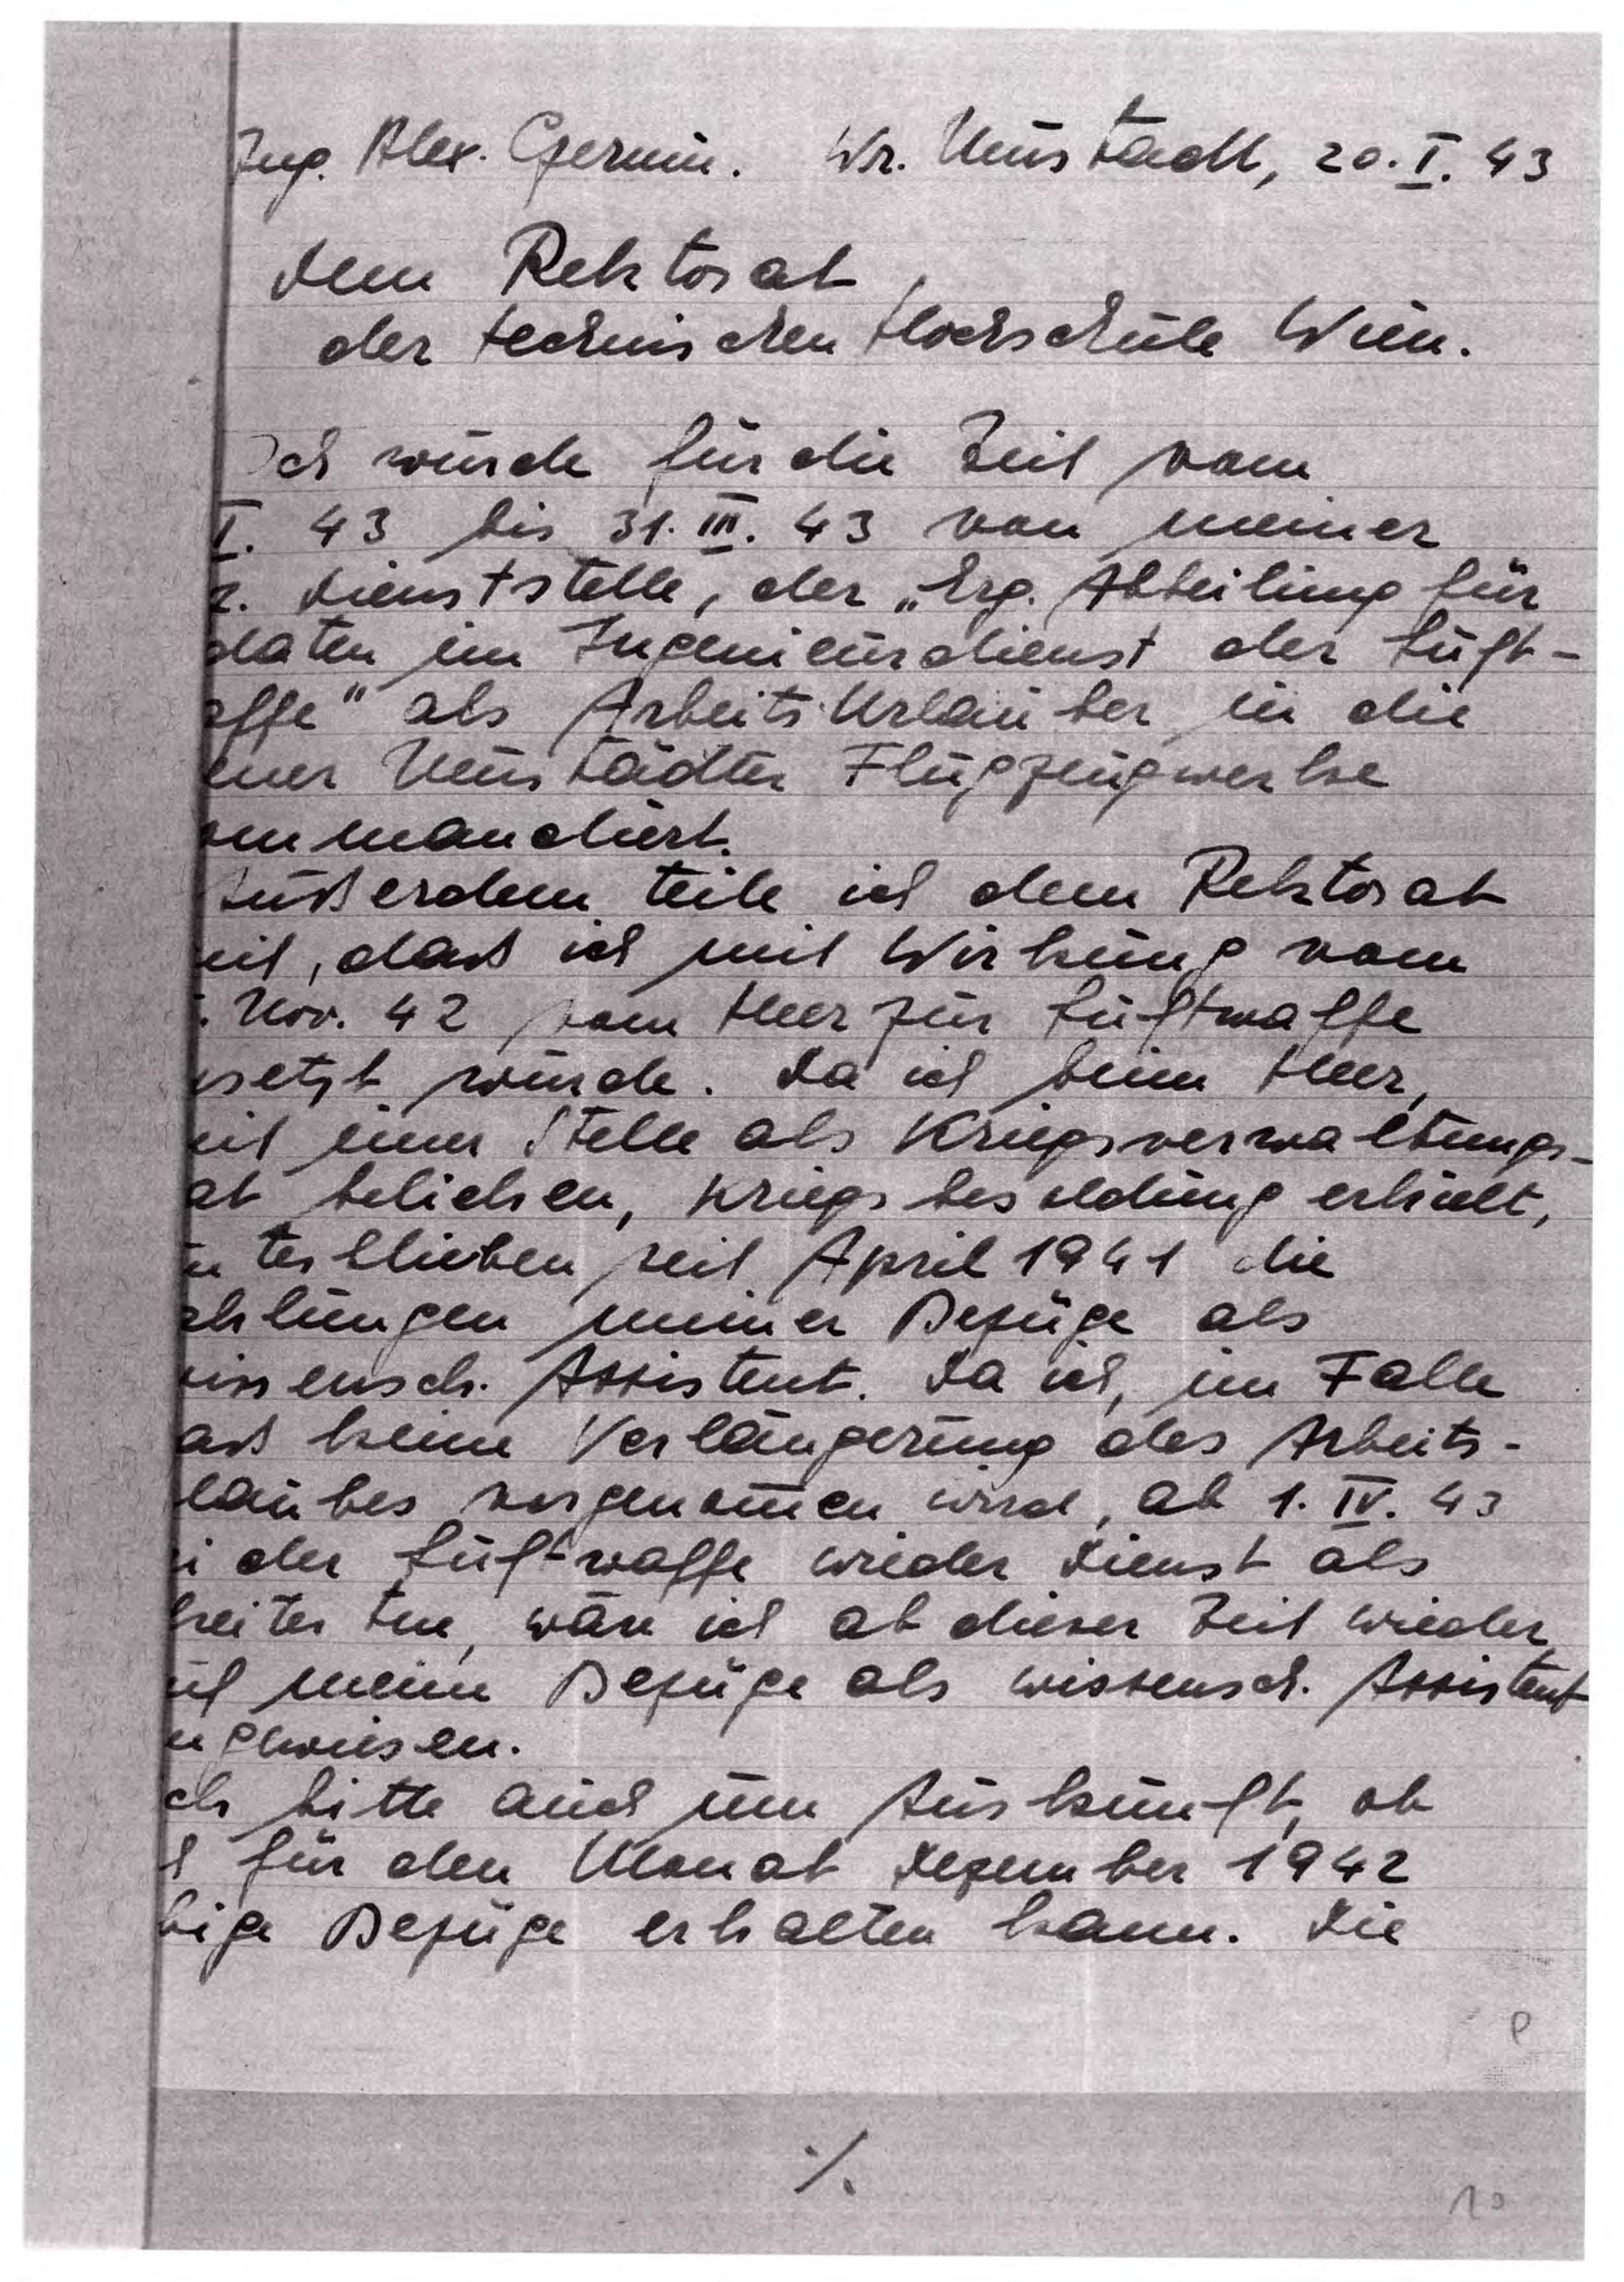 Ing. Alex. Czernin. Wr. Neustadt, 20. I. 43
Dem Rektorat
der technischen Hochschule Wien.
Ich wurde für die Zeit vom
I. 43 bis 31. III. 43 von meiner
z. Dienststelle, der „Erg. Abteilung für
daten im Ingenieurdienst der Luft-
affe" als Arbeits Urlauber in die
ener Neustädter Flugzeugwerke
ommandiert.
Außerdem teile ich dem Rektorat
mit, daß ich mit Wirkung vom
. Nov. 42 vom Heer zur Luftwaffe
rsetzt wurde. Da ich beim Heer,
mit einer Stelle als Kriegsverwaltungs-
at beliehen, Kriegsbesoldung erhielt,
unterblieben seit April 1941 die
ahlungen meiner Bezüge als
wissensch. Assistent. Da ich, im Falle
aß keine Verlängerung des Arbeits-
laubes vorgenommen wird, ab 1. IV. 43
i der Luftwaffe wieder Dienst als
freiter tue, wäre ich ab dieser Zeit wieder
uf meine Bezüge als wissensch. Assistent
ngewiesen.
ch bitte auch um Auskunft, ob
h für den Monat Dezember 1942
bige Bezüge erhalten kann. Die
./.
10